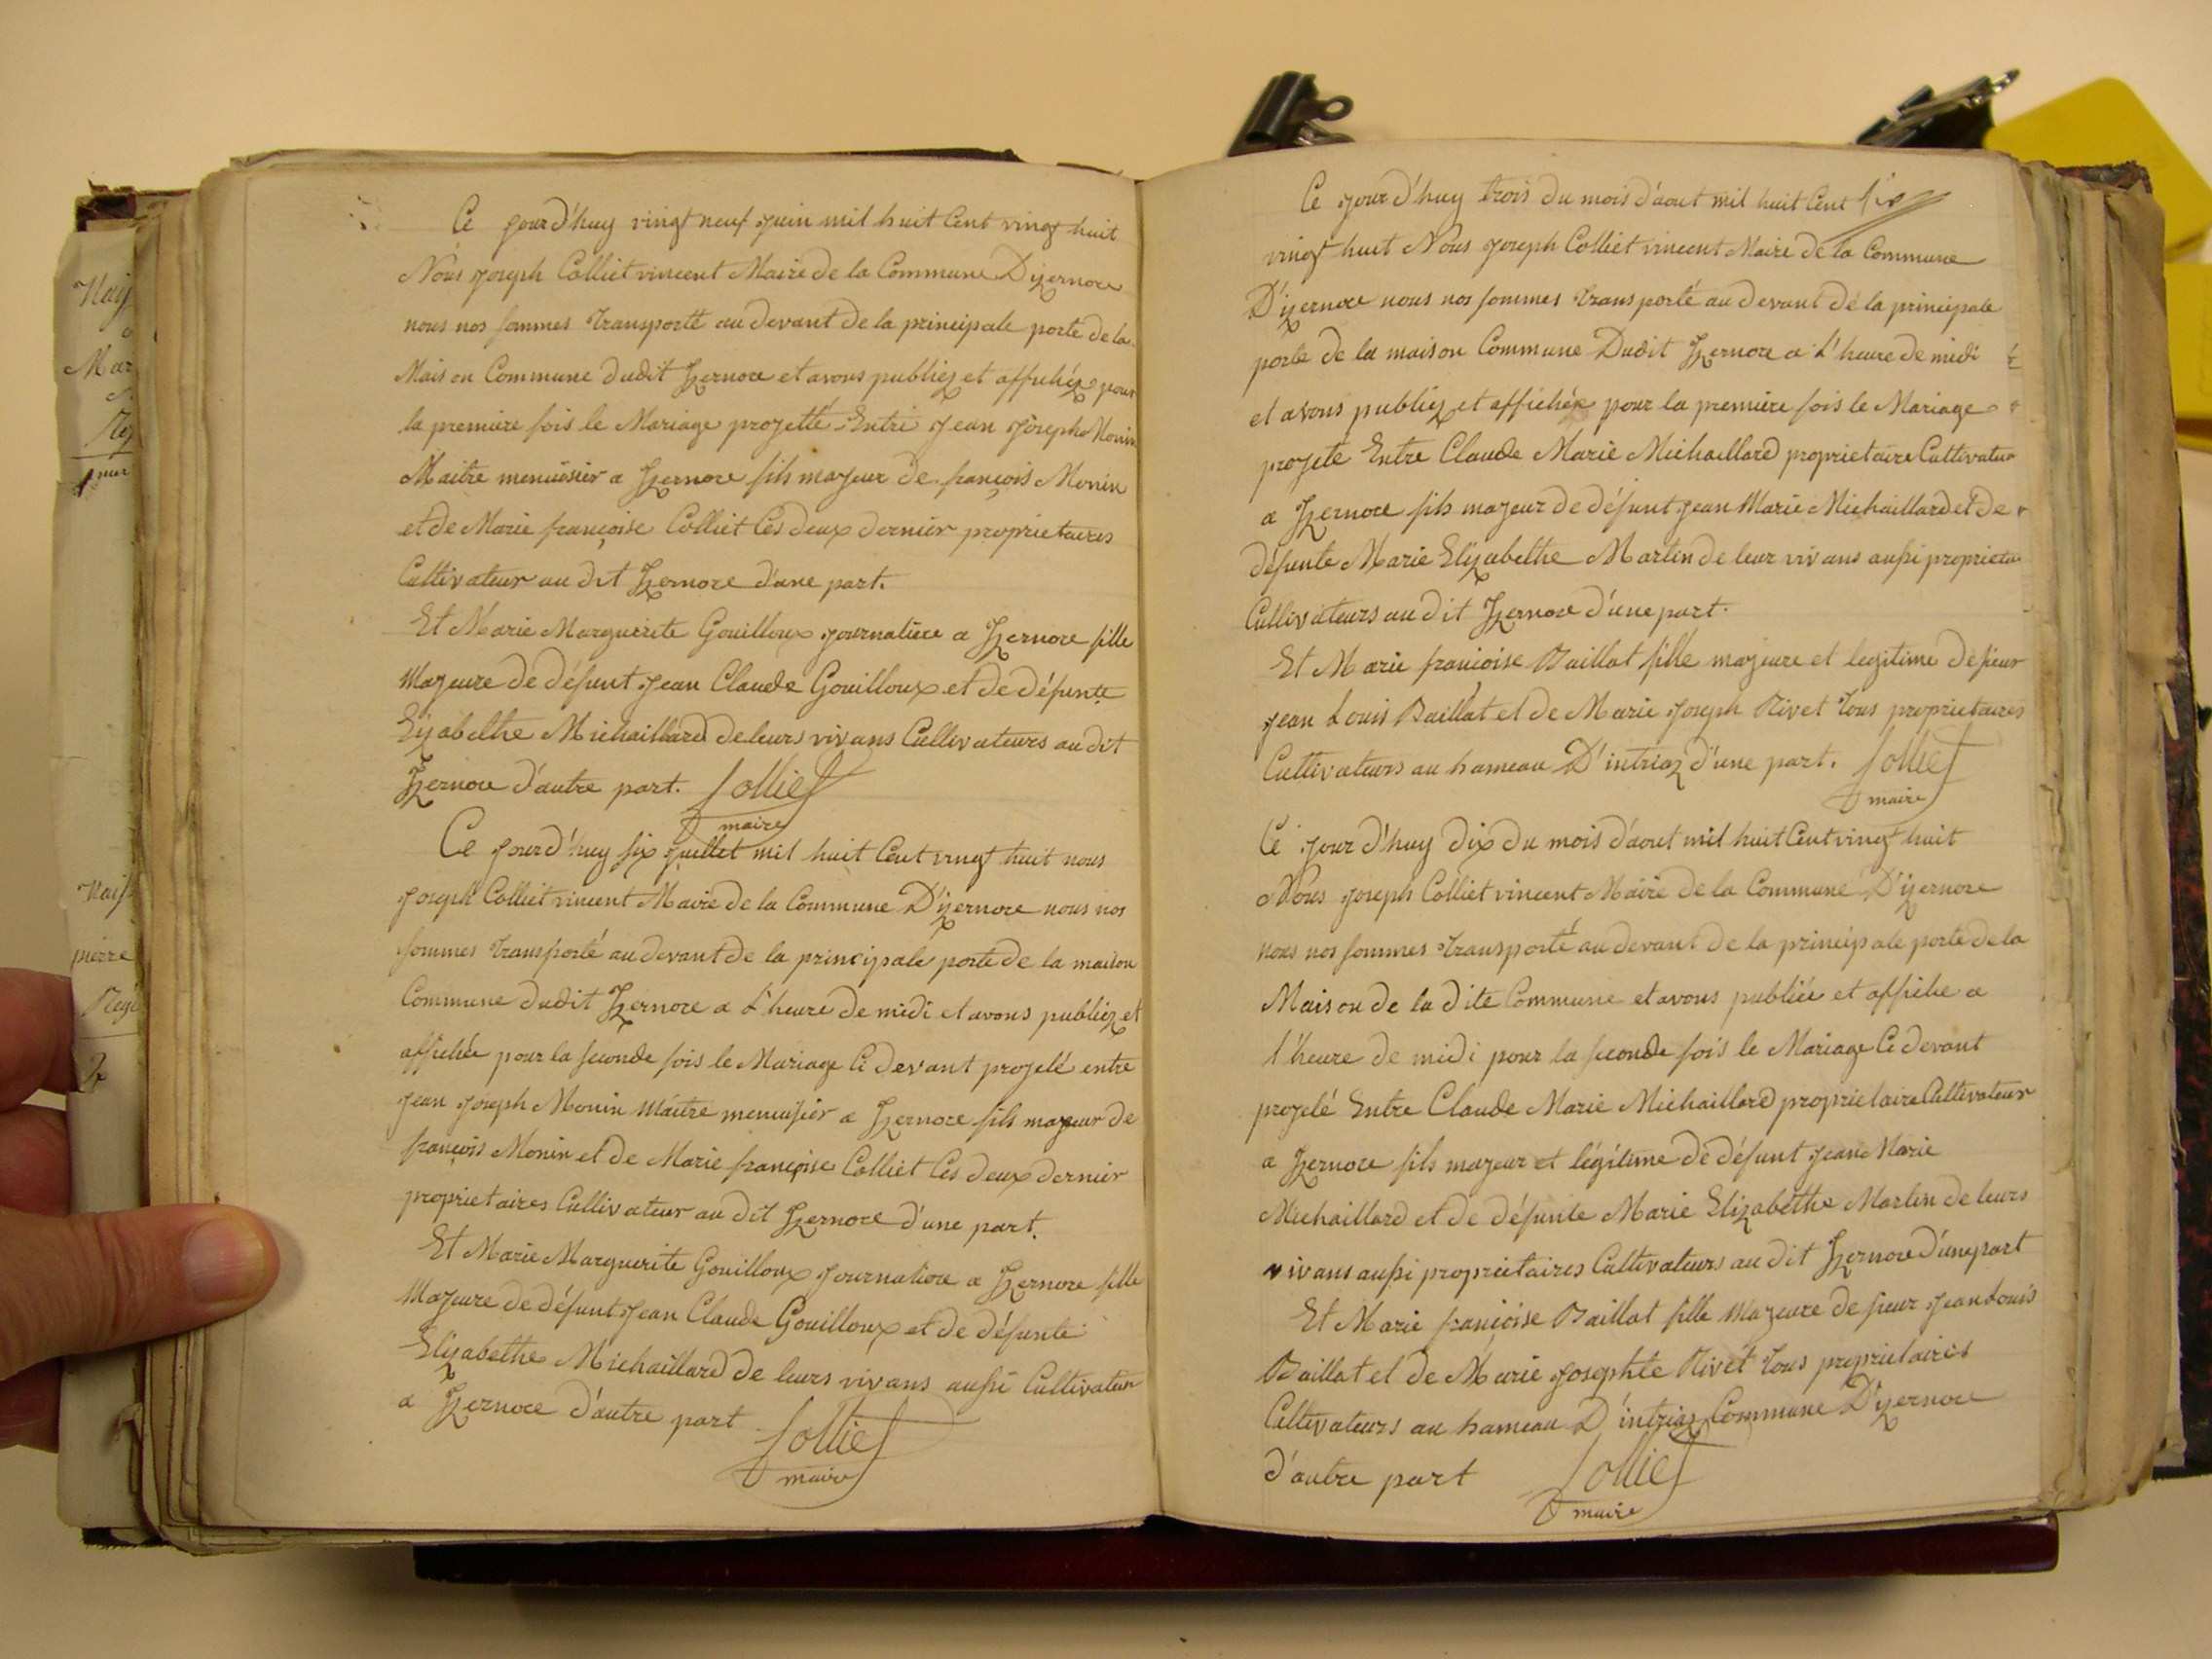 Naiss
Mar
1
Naiss
pierre
2
Ce jourd'huy vingt neuf juin mil huit Cent vingt huit
Nous joseph Colliet vincent Maire de la Commune D'izernore
nous nos sommes transporté au devant de la principale porte de la
Maison Commune dudit Izernore et avons publiez et affichéz pour
la premiere fois le Mariage projetté Entre jean joseph Monin
Maitre menuisier a Izernore fils majeur de françois Monin
et de Marie françoise Colliet Ces deux dernier proprietaires
Cultivateur au dit Izernore d'une part.
Et Marie Marguerite Gouilloux journaliere a Izernore fille
Majeure de défunt jean Claude Gouilloux et de défunte
Elizabethe Michaillard de leurs vivans Cultivateurs au dit
Izernore d'autre part. Colliet
maire
Ce jourd'huy six juillet mil huit Cent vingt huit nous
joseph Colliet vincent Maire de la Commune D'izernore nous nos
sommes transporté au devant de la principale porte de la maison
Commune dudit Izernore a L'heure de midi et avons publiez et
affichée pour la seconde fois le Mariage Ci devant projeté entre
jean joseph Monin Maitre menuisier a Izernore fils majeur de
françois Monin et de Marie françoise Colliet Ces deux dernier
proprietaires Cultivateur au dit Izernore d'une part.
Et Marie Marguerite Gouilloux journaliere a Izernore fille
Majeure de défunt jean Claude Gouilloux et de défunte
Elizabethe Michaillard de leurs vivans aussi Cultivateur
a Izernore d'autre part Colliet
maire
Ce jourd'huy trois du mois d'aout mil huit Cent six
vingt huit Nous joseph Colliet vincent Maire de la Commune
D'izernore nous nos sommes transporté au devant de la principale
porte de la maison Commune Dudit Izernore a L'heure de midi
et avons publiez et affichée pour la premiere fois le Mariage
projeté Entre Claude Marie Michaillard proprietaire Cultivateur
a Izernore fils majeur de défunt jean Marie Michaillard et de
défunte Marie Elizabethe Martin de leur vivans aussi proprietai
Cultivateurs au dit Izernore d'une part.
Et Marie françoise Baillat fille majeure et legitime de sieur
jean Louis Baillat et de Marie joseph Rivet tous proprietaires
Cultivateurs au hameau D'intriaz d'une part. Colliet
maire
Ce jourd'huy dix du mois d'aout mil huit Cent vingt huit
Nous joseph Colliet vincent Maire de la Commune D'izernore
nous nos sommes transporté au devant de la principale porte de la
Maison de la dite Commune et avons publiée et affiché a
l'heure de midi pour la seconde fois le Mariage Ci devant
projeté Entre Claude Marie Michaillard proprietaire Cultivateur
a Izernore fils majeur et légitime de défunt jean Marie
Michaillard et de défunte Marie Elizabethe Martin de leurs
vivans aussi proprietaires Cultivateurs au dit Izernore d'une part
Et Marie françoise Baillat fille Majeure de sieur jean Louis
Baillat et de Marie josephte Rivet tous proprietaires
Cultivateurs au hameau D'intriaz Commune D'izernore
d'autre part Colliet
maire